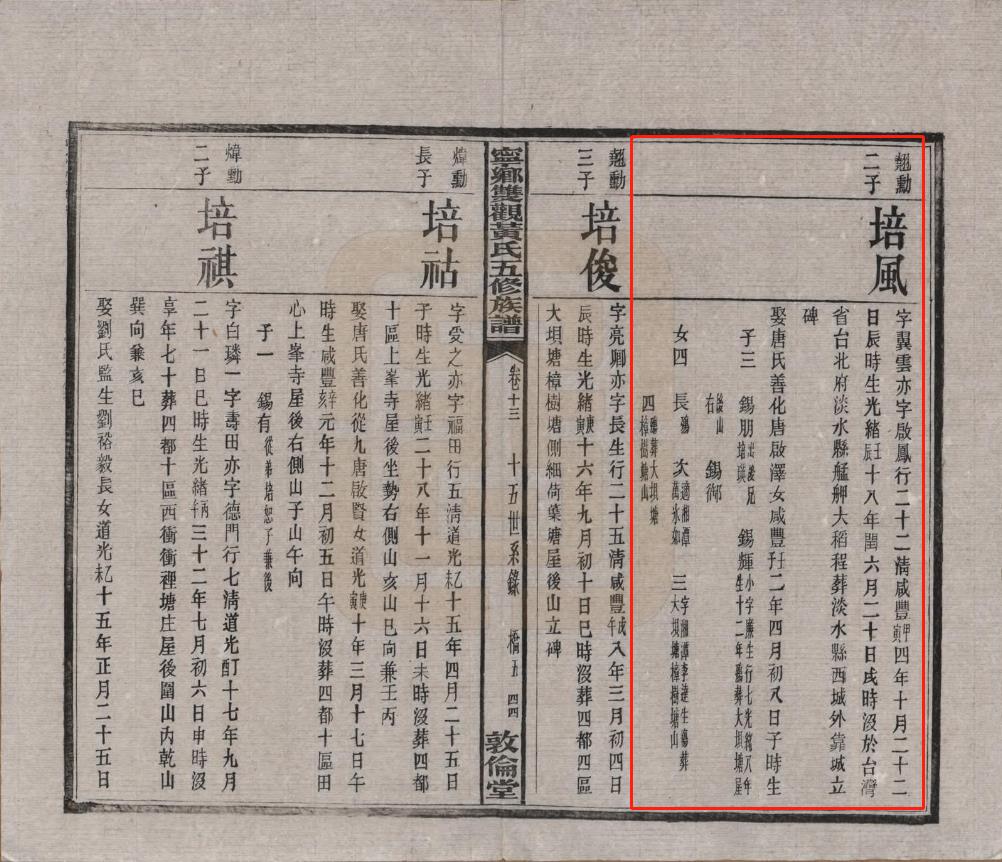 翹勳
二子
培風
字翼雲亦字啟鳳行二十二清咸豐甲寅四年十月二十二
日辰時生光緒壬辰十八年閏六月二十日戌時沒於台灣
省台北府淡水縣艋舺大稻程葬淡水縣西城外靠城立
碑
娶唐氏善化唐啟澤女咸豐壬子二年四月初八日子時生
子三 錫朋出撫兄培璜 錫輝小字廉生行七光緒八年生十二年殤葬大坝塘屋
後山右 錫衡
女四 長殤 次適湘潭萬永如 三字湘潭李達生殤葬大坝塘樟樹塘山
四殤葬大坝塘樟樹塘山
翹勳
三子
培俊
字亮卿亦字長生行二十五清咸豐戊午八年三月初四日
辰時生光緒庚寅十六年九月初十日巳時沒葬四都四區
大坝塘樟樹塘側細荷葉塘屋後山立碑
寧鄉雙觀黃氏五修族譜
卷十三
十五世系錄
橋五
四四
敦倫堂
煒勳
長子
培祜
字受之亦字福田行五清道光乙未十五年四月二十五日
子時生光緒壬寅二十八年十一月十六日未時沒葬四都
十區上峯寺屋後坐勢右側山亥山巳向兼壬丙
娶唐氏善化從九唐啟賢女道光庚寅十年三月十七日午
時生咸豐辛亥元年十二月初五日午時沒葬四都十區田
心上峯寺屋後右側山子山午向
子一 錫有從弟培恕子兼後
煒勳
二子
培祺
字白璘一字壽田亦字德門行七清道光丁酉十七年九月
二十一日巳時生光緒丙午三十二年七月初六日申時沒
享年七十葬四都十區西衝衝裡塘庄屋後圍山丙乾山
巽向兼亥巳
娶劉氏監生劉裕毅長女道光乙未十五年正月二十五日